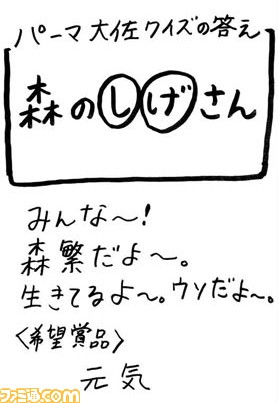 パーマ大佐クイズの答え
森のしげさん
みんな～!
森繁だよ～。
生きてるよ～。ウソだよ～。
〈希望賞品〉
元気
ファミ通.com